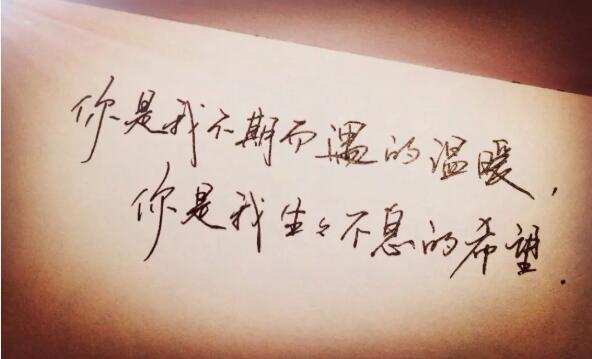 你是我不期而遇的温暖，
你是我生々不息的希望．